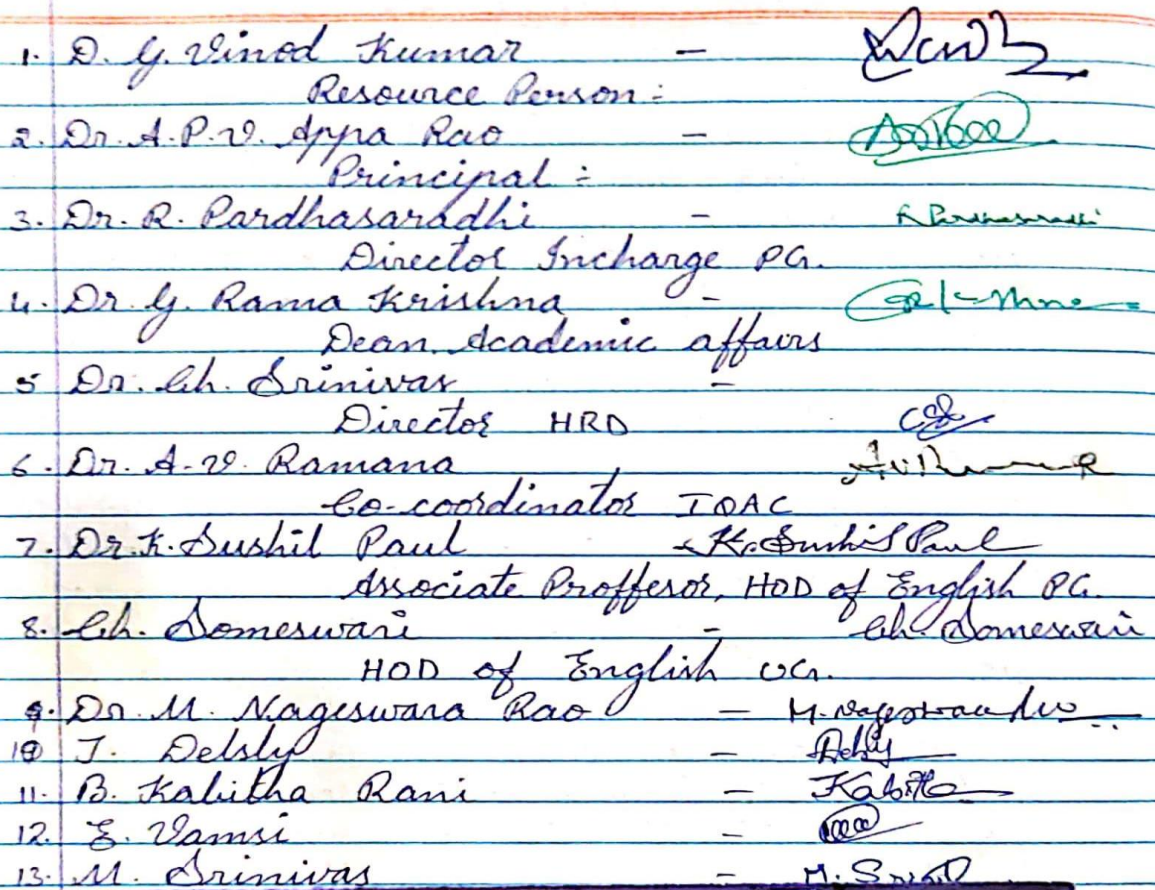 1. D. G. Vinod Kumar -
Resource Person :
2. Dr. A. P. V. Appa Rao -
Principal :
3. Dr. R. Pardhasaradhi - R Pardhasaradhi
Director Incharge PG.
4. Dr G. Rama Krishna -
Dean. Academic affairs
5 Dr. Ch. Srinivas -
Director HRD
6. Dr. A.V. Ramana
Co-coordinator IQAC
7. Dr. K. Sushil Paul - K. Sushil Paul
Associate Proffesor, HOD of English PG.
8. Ch. Someswari - Ch. Someswari
HOD of English UG.
9. Dr. M. Nageswara Rao - M. Nageswara Rao
10 J. Delsly - Delsy
11. B. Kabitha Rani - Kabitha
12. E. Vamsi -
13. M. Srinivas -